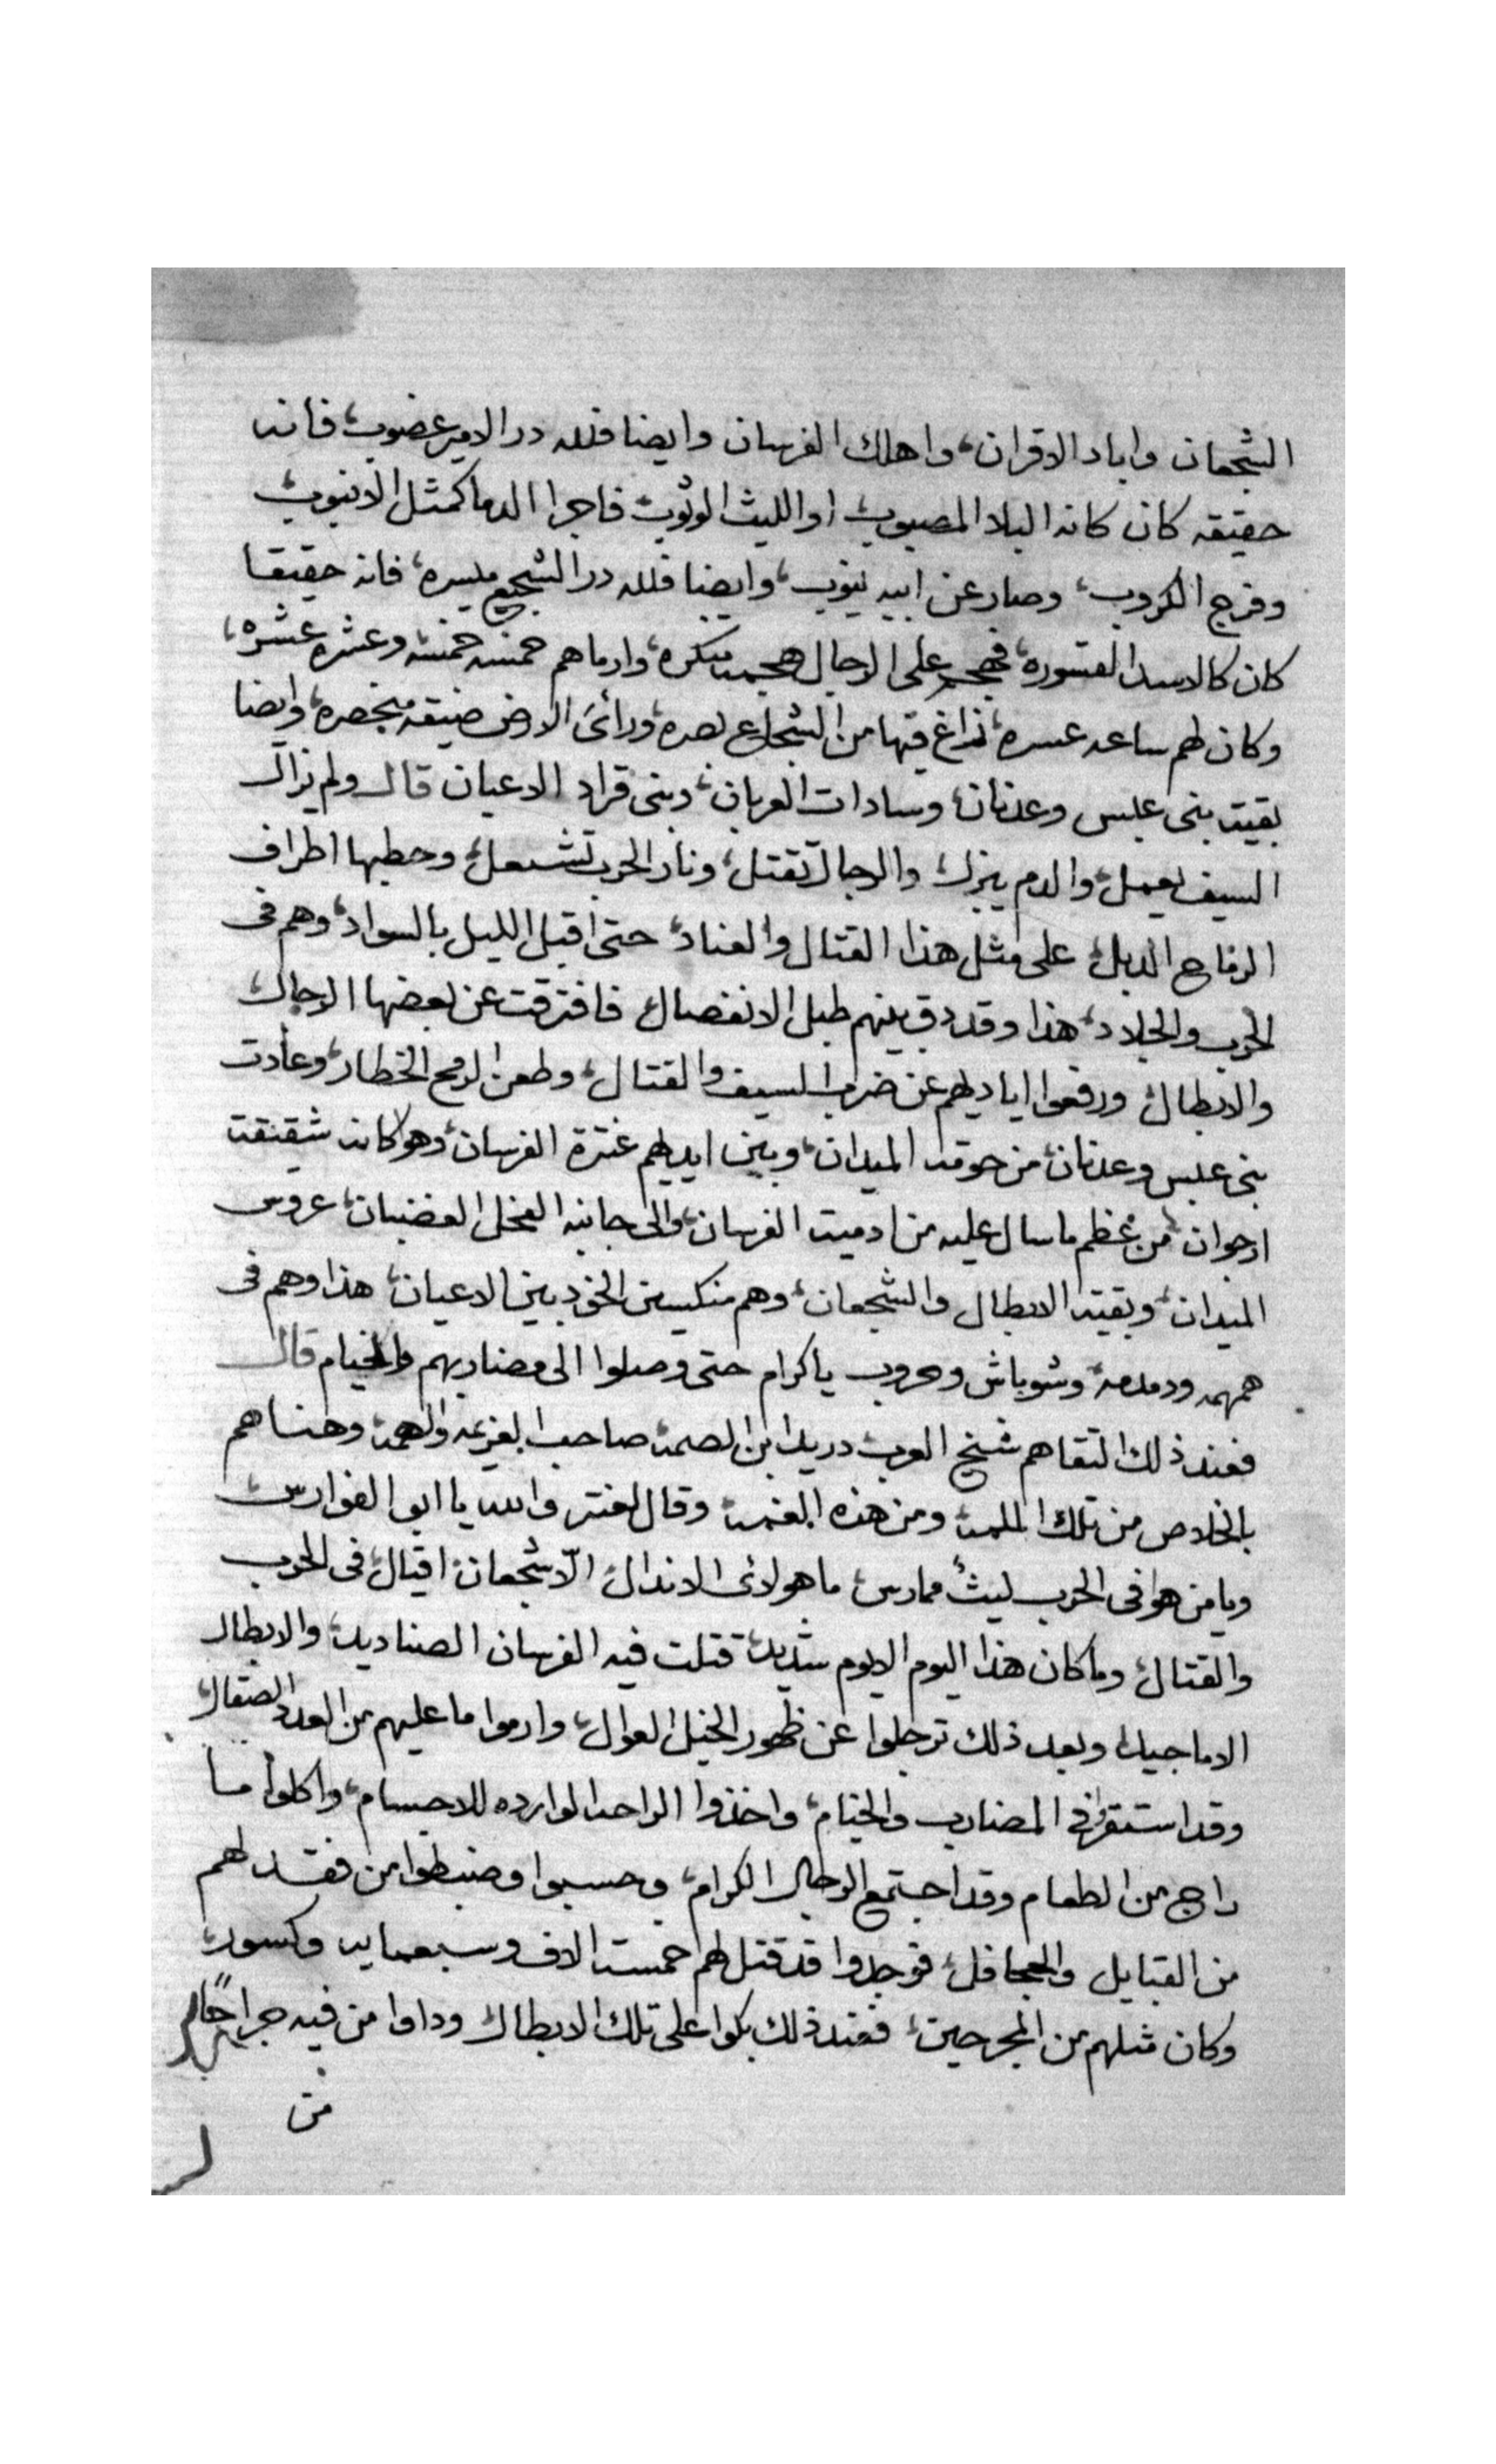 الشجعان واباد الاقران، واهلك الفرسان وايضا فلله در الامير غضوب، فانه
حقيقه كان كانه البلا المصبوب، او الليث الوثوب، فاجرا الدما كمثل الانبوب،
وفرج الكروب، وصار عن ابيه ينوب، وايضا فلله در الشجيع ميسره، فانه حقيقا
كان كالاسد القسوره، فهجم على الرجال هجمة منكره، وارماهم خمسه خمسه وعشره عشره،
وكان لهم ساعه عسره، زاغ فيها من الشجاع بصره، ورائى الارض ضيقه منحصره، وايضا
بقيت بنى عبس وعدنان، وسادات العربان، وبنى قراد الاعيان قال ولم يزال
السيف يعمل، والدم ينزل، والرجال تقتل، ونار الحرب تشعل، وحطبها اطراف
الرماح الدبل، على مثل هذا القتال والعناد، حتى اقبل الليل بالسواد، وهم فى
الحرب والجلاد، هذا وقد دق بينهم طبل الانفصال، فافترقت عن بعضها الرجال،
والابطال، ورفعوا اياديهم عن ضرب السيف والقتال، وطعن الرمح الخطار، وعادت
بنى عبس وعدنان، من حومة الميدان، وبين ايديهم عنترة الفرسان، وهو كانه شقيقت
ارجوان، من عظم ما سال عليه من ادميت الفرسان، والى جانبه الفحل الغضبان، عروس
الميدان، وبقيت الابطال والشجعان، وهم منكسين الخود بين الاعيان، هذا وهم فى
همهمه ودمدمه، وشوباش وحروب ياكرام حتى وصلوا الى مضاربهم والخيام قال
فعند ذلك التقاهم شيخ العرب دريد ابن الصمة صاحب العزيمه والهمة، وهناهم
بالخلاص من تلك الملمة، ومن هذه الغمة، وقال لعنتر والله يا ابو الفوارس،
ويا من هو فى الحرب ليثٌ ممارس، ما هولائى الاندال، الّا شجعان، اقيال، فى الحرب
والقتال، وما كان هذا اليوم الا يوم شديد، قتلت فيه الفرسان الصناديد، والابطال
الاماجيد، وبعد ذلك ترجلوا عن ظهور الخيل العوال، وارموا ما عليهم من العدد الصقال،
وقد استقروا فى المضارب والخيام، واخذوا الراحه الوارده للاجسام، واكلوا ما
راج من الطعام وقد اجتمع الرجال الكرام، وحسبوا وضبطوا من فقد لهم
من القبايل والجحافل، فوجدوا قد قتل لهم خمست الاف وسبعمايه وكسور،
وكان مثلهم من المجرحين، فعند ذلك بكوا على تلك الابطال، وداوا من فيه جراحًا،
من